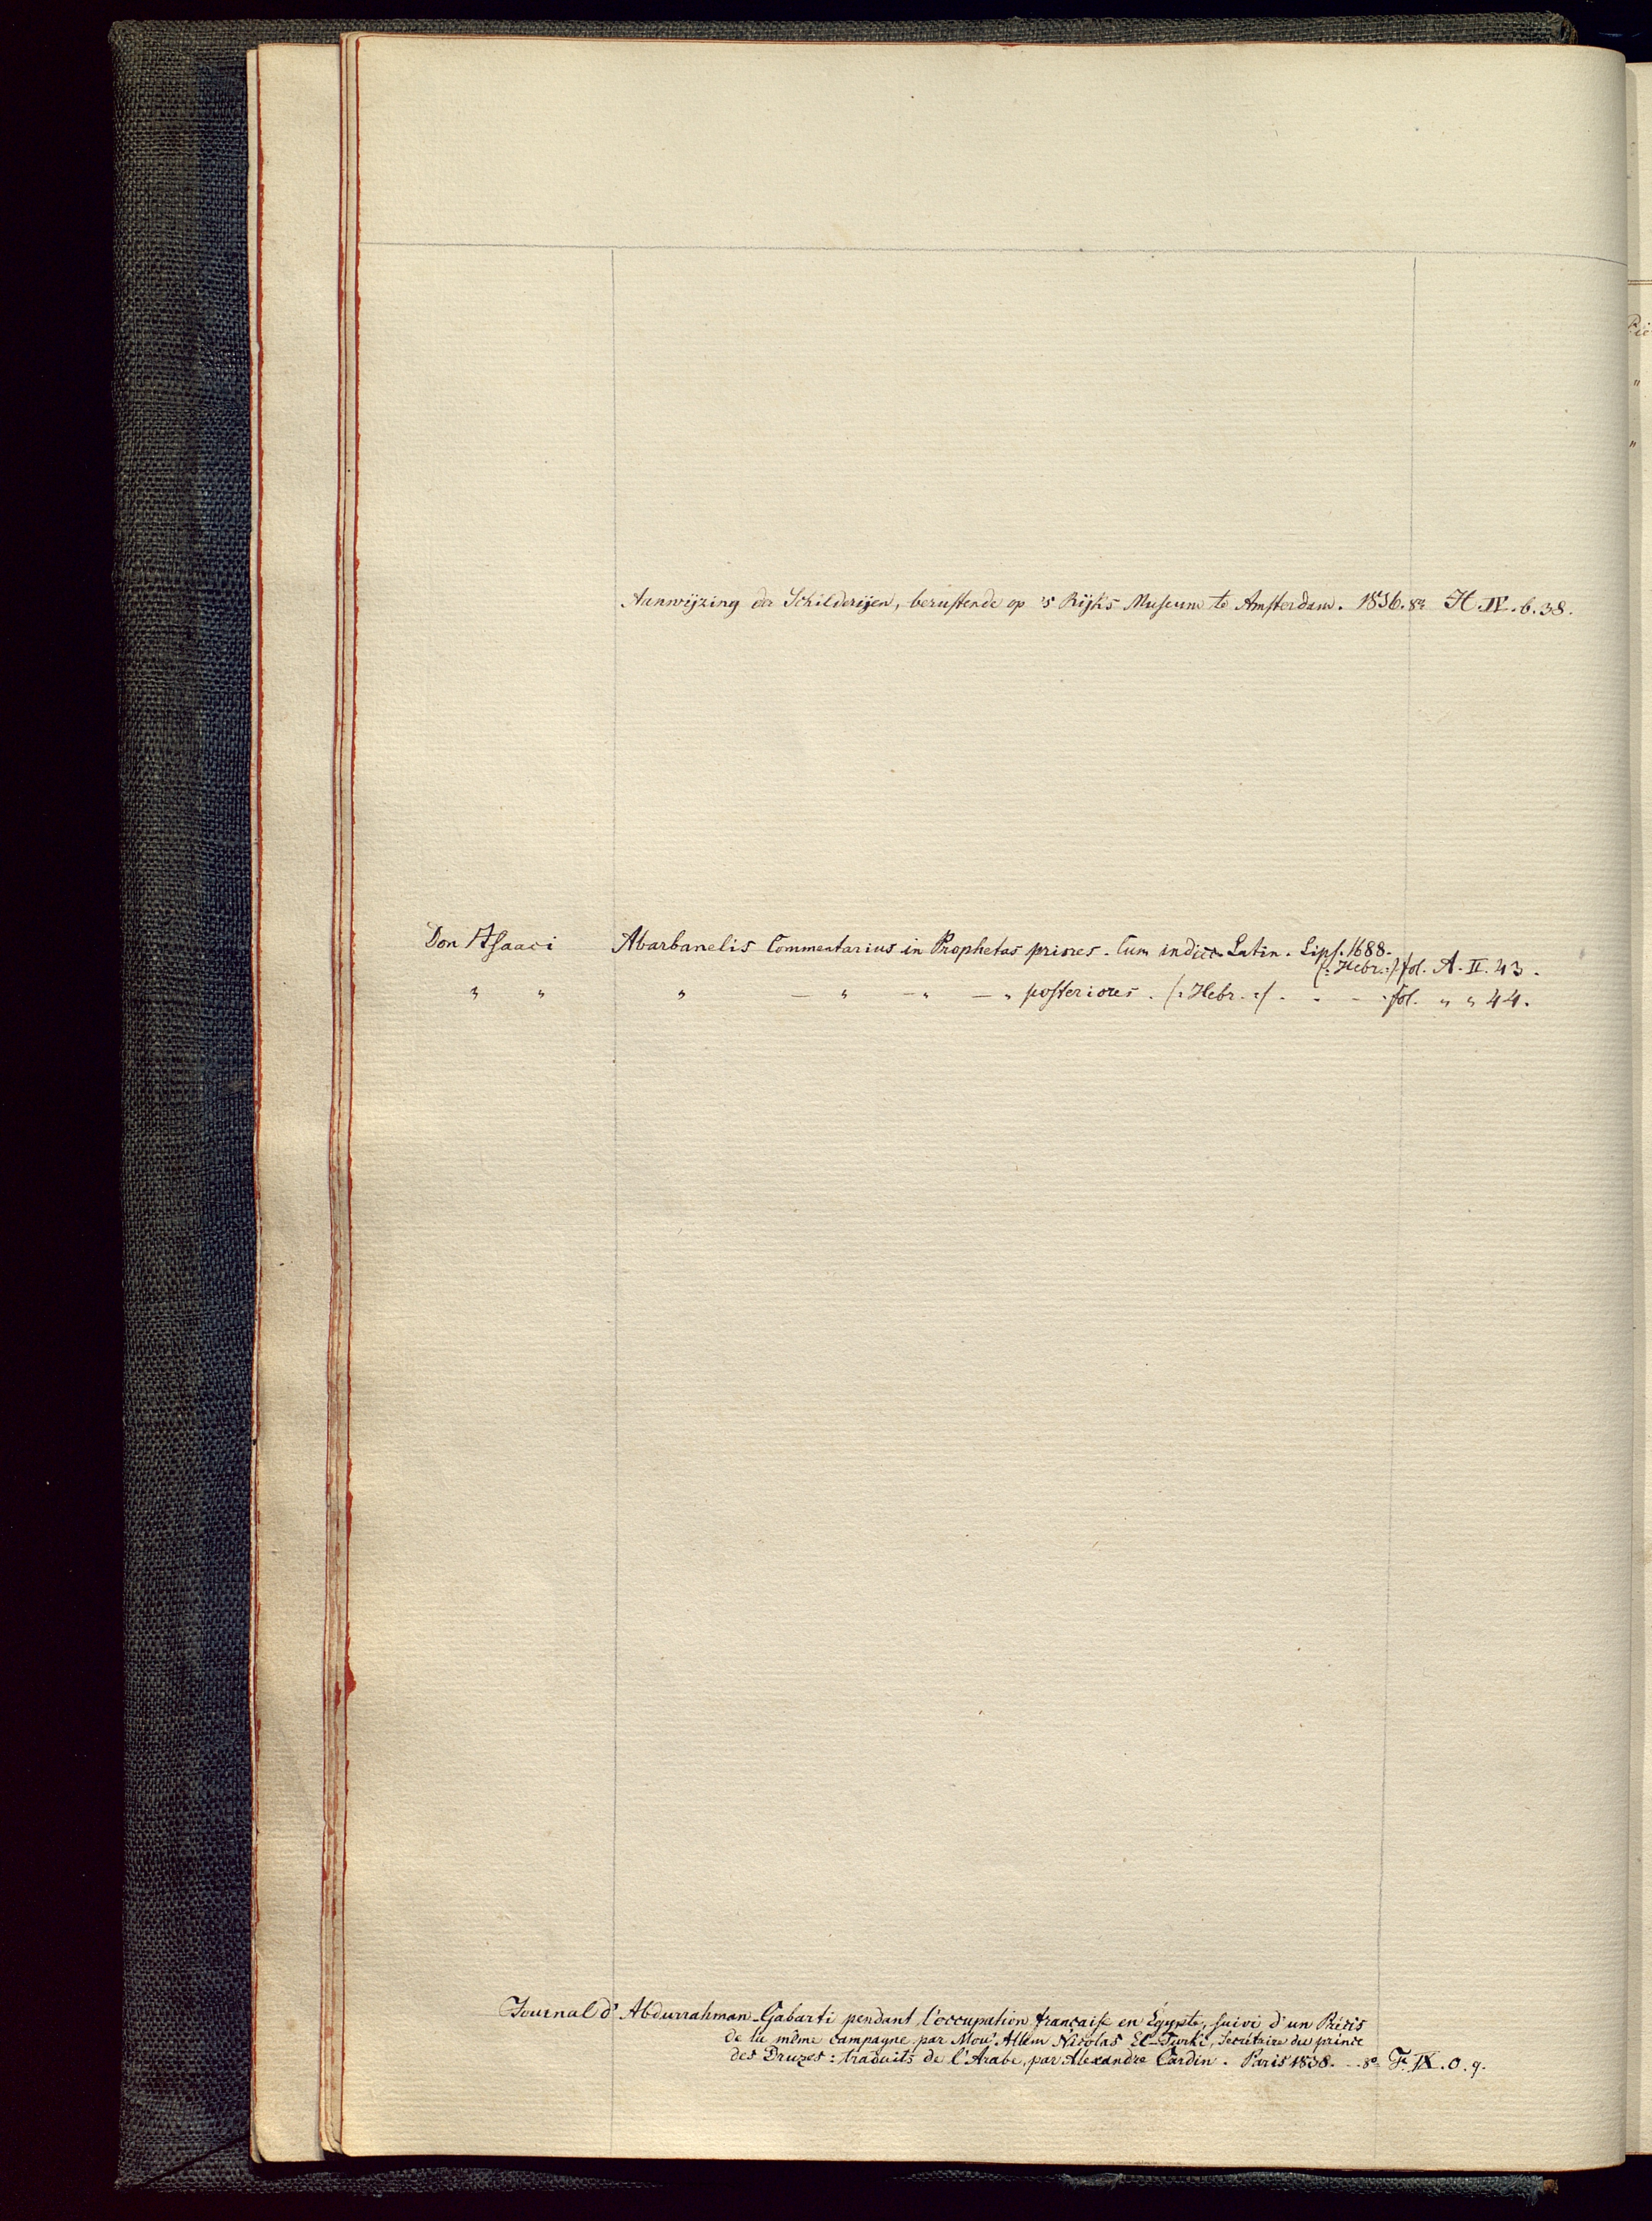 Aanwijzing der Schilderijen, berustende op 's Rijks Museum te Amsterdam. 1836. 8º H. IV. b. 38.
Don Isaaci Abarbanelis Commentarius in Prophetas priores. Cum indice Latin. Lips. 1688.
(: Hebr. :) fol. A. II. 43.
" " " — " — " — " posteriores. (: Hebr. :) . - - - fol. " " 44.
Journal d' Abdurrahman-Gabarti pendant l'occupation française en Égypte, suivi d'un Précis
de la même campagne, par Mou' Allem Nicolas El-Turki, secrétaire du prince
des Druzes: traduits de l'Arabe, par Alexandre Cardin. Paris 1838. - 8º F. IX. 0. 9.